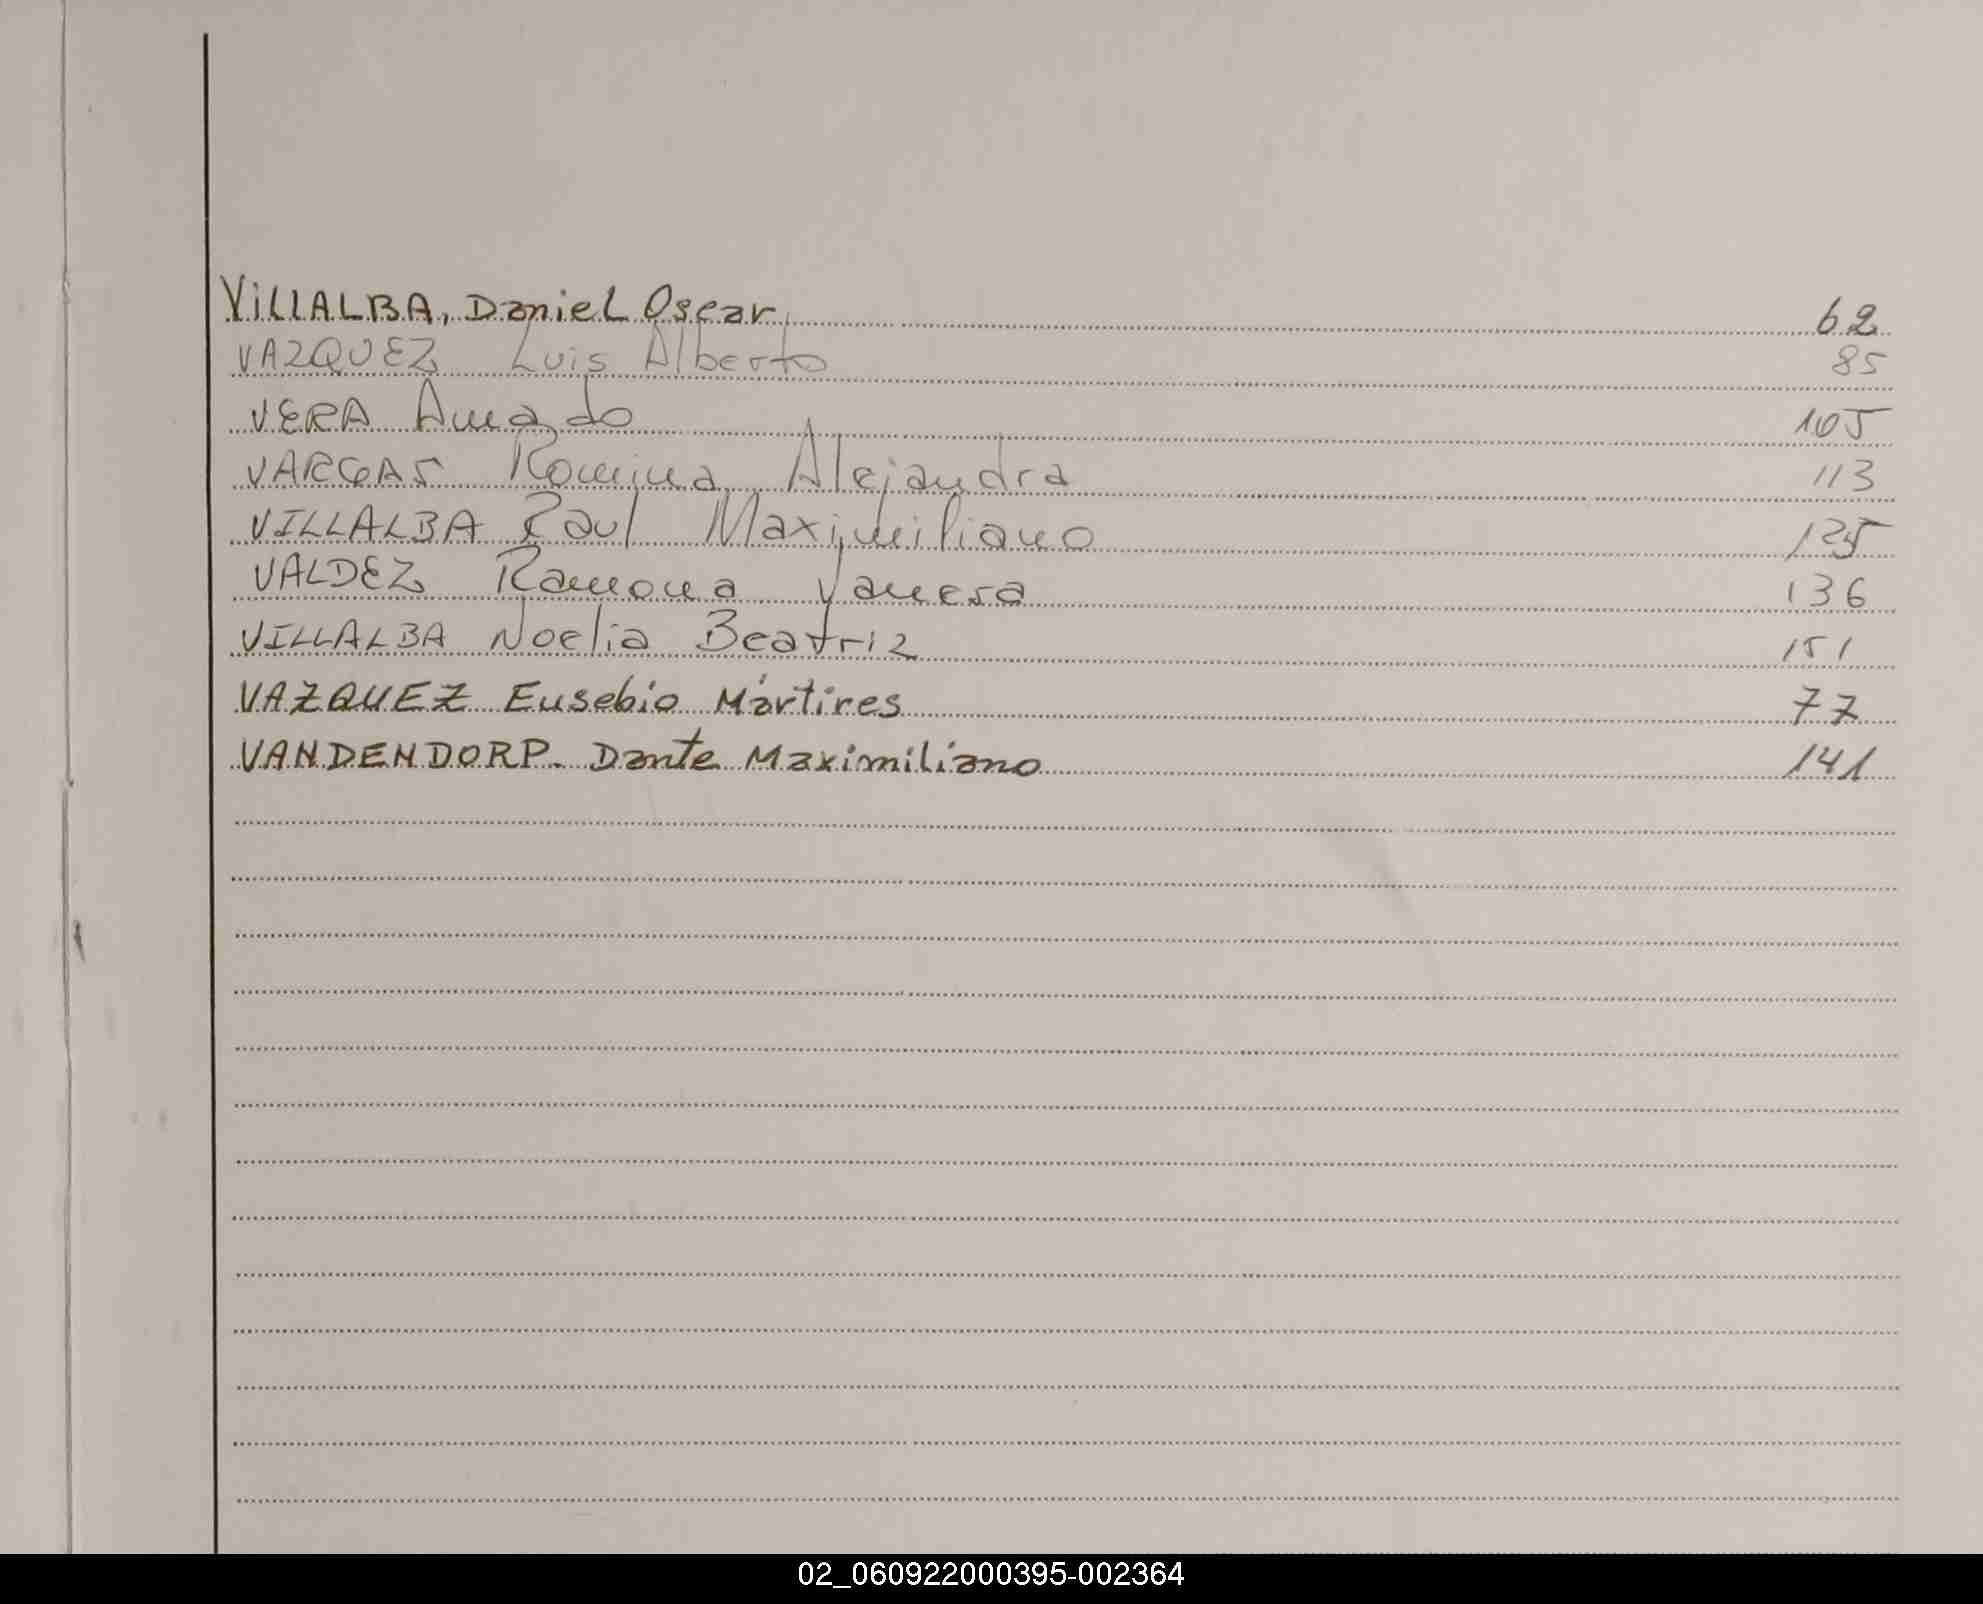 VILLALBA, Daniel Oscar 62
VAZQUEZ Luis Alberto 85
VERA Amado 105
VARGAS Romina Alejandra 113
VILLALBA Raul Maximiliano 125
VALDEZ Ramona Vanesa 136
VILLALBA Noelia Beatriz 151
VAZQUEZ Eusebio Mártires 77
VANDENDORP. Dante Maximiliano 141
02_060922000395-002364